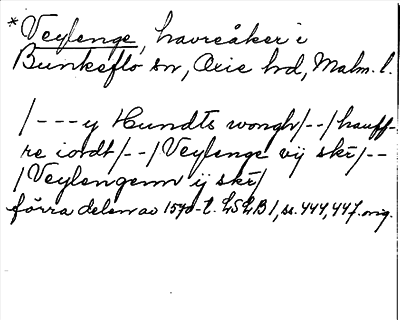 *Veylenge, havreåker i
Bunkeflo sn, Oxie hd, Malm. l.
/---y Hundts wongh/--/hauff-
re iordt/--/Veylenge vij skr/--
/Veylengenn ij skr/
förra delen av 1570-t. LSLB 1, ss. 444, 447. orig.